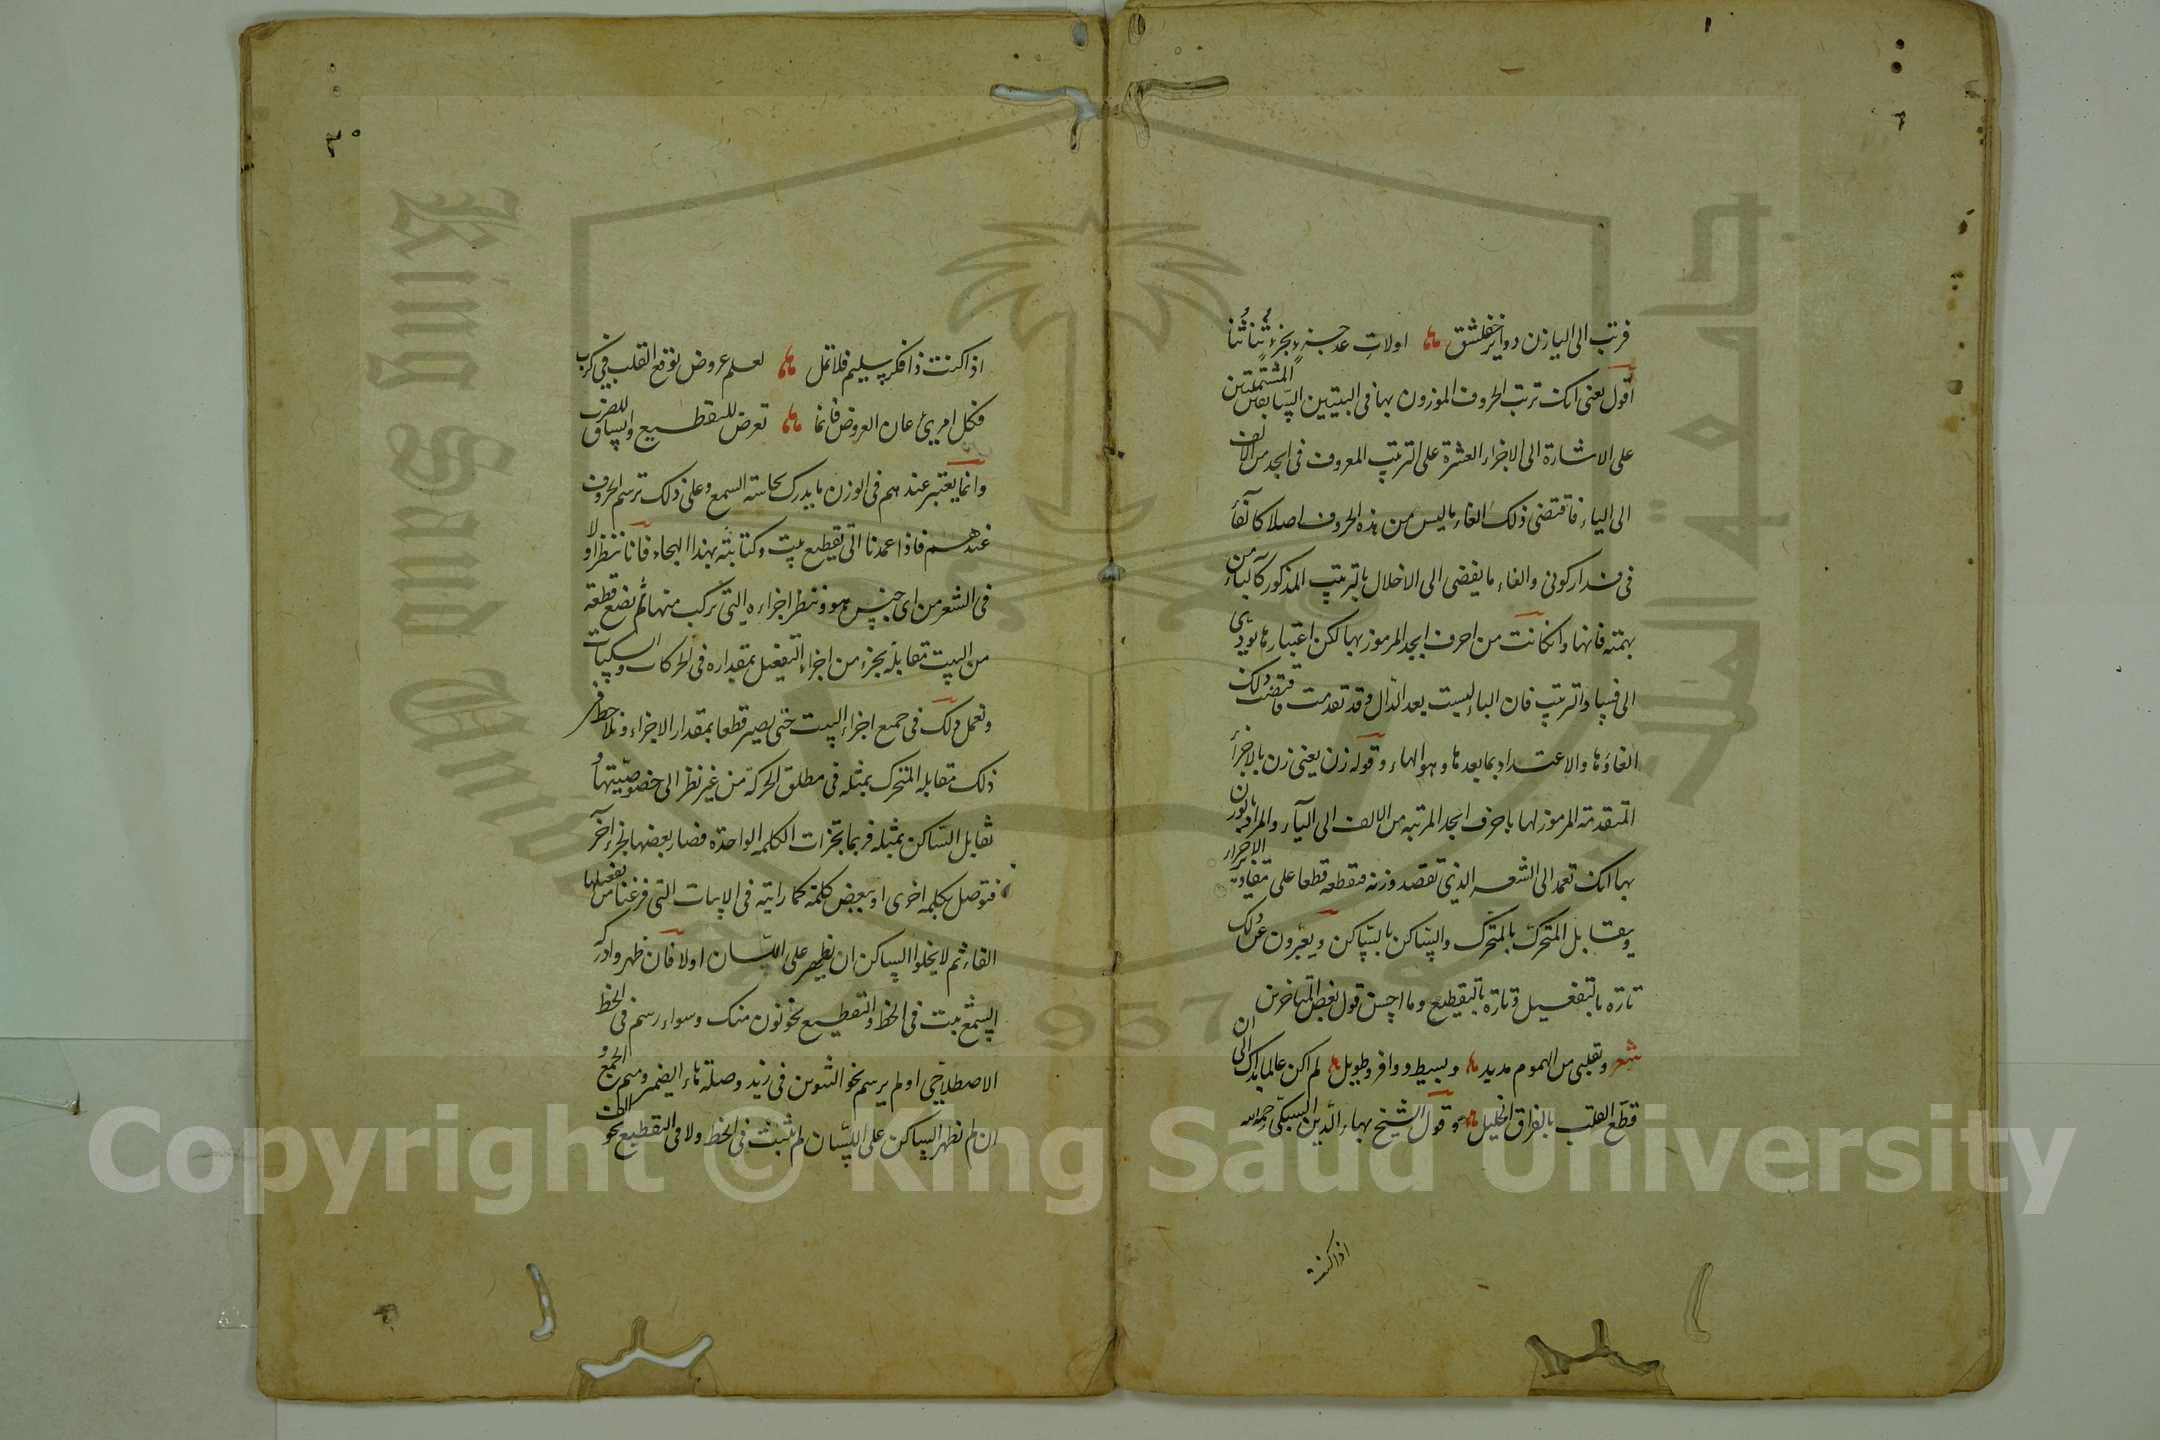 فرتب الى اليا زن دوائر خفلشق اولات عد جزء بجزء ثنا ثنا
اقول يعنى انك ترتب الحروف الموزون بها فى البيتين السابقين المشتملين
على الاشارة الى الاجزاء العشرة على الترتيب المعروف فى ابجد من الالف
الى الياء فاقتضى ذلك الغاء ما ليس من هذه الحروف اصلا كآنفا
فى والغاء ما يفضى الى الاخلال بالترتيب المذكور كالباء من
بهمته فانها وان كانت من احرف ابجد المرموز بها لكن اعتبارها يودى
الى فساد الترتيب فان الباء ليست بعد الدال وقد تقدمت فاقتضت ذلك
الغاؤها والاعتداد بما بعدها وهو الهاء وقوله زن يعنى زن بالاجزاء
المتقدمة المرموز لها باحرف ابجد المرتبه من الالف الى الياء والمراد بالوزن
بها انك تعمد الى الشعر الذى تقصد وزنه فتقطعه قطعا على مقادير الاجزاء
ويقابل المتحرك بالمتحرك والساكن بالساكن ويعبرون عن ذلك
تارة بالتفعيل وتارة بالتقطيع وما احسن قول بعض المتاخرين
شعر وتقلبى من الهموم مديد وبسيط ووافر وطويل لم اكن عالما بذاك الى ان
قطع القلب بالفراق الخليل وقول الشيخ بهاء الدين السبكى رحمه الله
اذا كنت
اذا كنت ذا فكر سليم فلا تمل لعلم عروض يوقع القلب فى كرب
فكل امرئ عان العروض فانما تعرض للتقطيع وانساق للضرب
وانما يعتبر عندهم فى الوزن ما يدرك بحاسة السمع وعلى ذلك ترسم الحروف
عندهم فاذا عمدنا الى تقطيع بيت وكتابته بهذا الهجاء فانا ننظر اولا
فى الشعر من اى جنس هو وننظر اجزاءه التى تركب منها ثم نضع قطعة
من البيت مقابلة بجزء من اجزاء التفعيل بمقداره فى الحركات والسكنات
ونعمل ذلك فى جميع اجزاء البيت حتى يصير قطعا بمقدار الاجزاء ونلاحظ فى
ذلك مقابلة المتحرك بمثله فى مطلق الحركة من غير نظر الى خصوصيتها و
نقابل الساكن بمثله فربما تجزات الكلمة الواحدة فصار بعضها لجزء آخر
فتوصل بكلمة اخرى او ببعض كلمة كما رايته فى الابيات التى فرغنا من تفعيلها
الفاء ثم لا يخلوا الساكن ان يظهر على اللسان اولا فان ظهر وادركه
السمع ثبت فى الخط والتقطيع نحو نون منك وسواء رسم فى الخط
الاصطلاحى او لم يرسم نحو التنوين فى زيد وصلة هاء الضمير وميم الجمع و
ان لم يظهر الساكن على اللسان لم يثبت فى الخط ولا فى التقطيع نحو الف
Copyright © King Saud University
King Saud University
جامعة الملك سعود
1957